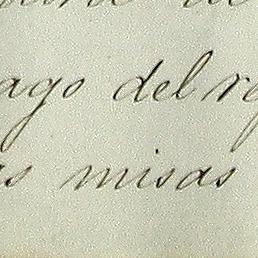 ago del re
as misas